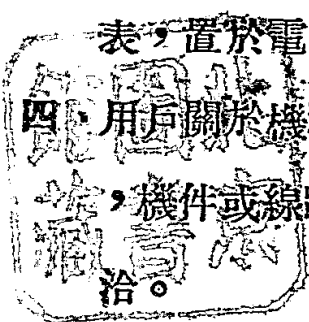 表，置於電
四、用戶關於機
，機件或線
洽。